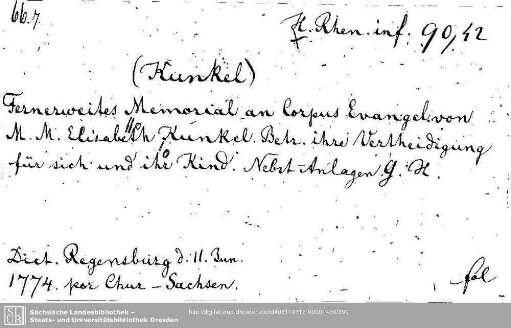 66.7.
H. Rhen. inf. 90,42
(Kunkel)
Fernerweites Memorial an Corpus Evangel. von
M. M. Elisabeth Kunkel. Betr. ihre Vertheidigung
für sich und ihr Kind. Nebst Anlagen G. H.
Dict. Regensburg d. 11. Jun.
1774. per Chur-Sachsen.
fol
Sächsische Landesbibliothek –
Staats- und Universitätsbibliothek Dresden